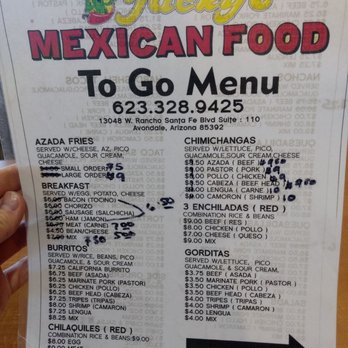 Jacky's
MEXICAN FOOD
To Go Menu
623.328.9425
13048 W. Rancho Santa Fe Blvd Suite : 110
Avondale, Arizona 85392
AZADA FRIES
SERVED W/CHEESE, AZ, PICO
GUACAMOLE, SOUR CREAM,
CHEESE
SMALL ORDER 7.5
LARGE ORDER
BREAKFAST
SERVED W/EGG, POTATO, CHEESE
$6.00 BACON (TOCINO)
$6.00 CHORIZO
$6.00 SAUSAGE (SALCHICHA)
$6.00 HAM (JAMON)
MEAT (CARNE)
$4.50 BEAN/CHEESE
MIX 7.50
BURRITOS
SERVED W/RICE, BEANS, PICO
GUACAMOLE, & SOUR CREAM.
$7.25 CALIFORNIA BURRITO
$6.75 BEEF (ASADA)
$6.25 MARINATE PORK (PASTOR)
$6.25 CHICKEN (POLLO)
$6.25 BEEF HEAD (CABEZA)
$7.25 TRIPES (TRIPAS)
$8.00 SHRIMP (CAMARON)
$7.25 LENGUA
$8.25 MIX
CHILAQUILES ( RED )
COMBINATION RICE & BEANS:$9.00
$8.00 EGG
CHIMICHANGAS
SERVED W/LETTUCE, PICO,
GUACAMOLE,SOUR CREAM,CHEESE
$8.50 AZADA ( BEEF )
$8.00 PASTOR ( PORK )
$8.00 POLLO ( CHICKEN )
$8.50 CABEZA ( BEEF HEAD )
LENGUA ( CARNE )
CAMORON ( SHRIMP ) 10
3 ENCHILADAS ( RED )
COMBINATION RICE & BEANS
$9.00 BEEF ( RES )
$8.00 CHICKEN ( POLLO )
$8.00 CHEESE ( QUESO )
$9.00 MIX
GORDITAS
SERVED W/LETTUCE, PICO
GUACAMOLE, & SOUR CREAM
$3.75 BEEF ( ASADA )
$3.50 MARINATE PORK ( PASTOR )
$3.50 CHICKEN ( POLLO )
$3.50 BEEF HEAD ( CABEZA )
$4.00 TRIPES ( TRIPAS )
$4.00 SHRIMP (CAMARON)
$4.00 LENGUA
$4.00 MIX